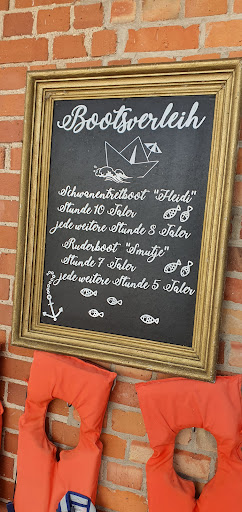 Bootsverleih
Schwanentretboot "Heidi"
Stunde 10 Taler
jede weitere Stunde 8 Taler
Ruderboot "Smutje"
Stunde 7 Taler
jede weitere Stunde 5 Taler